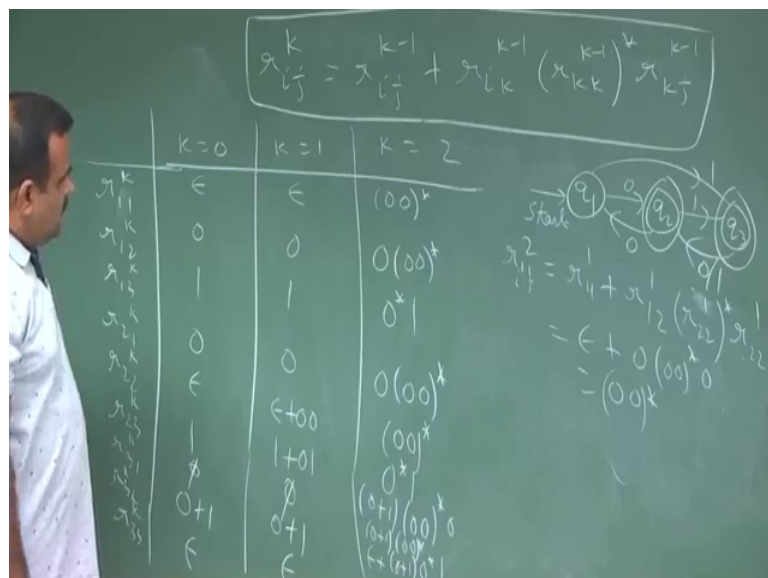 r_{ij}^{k} = r_{ij}^{k-1} + r_{ik}^{k-1} (r_{kk}^{k-1})^* r_{kj}^{k-1}
k=0 k=1 k=2
r_{11}^k ϵ ϵ (00)*
r_{12}^k 0 0 0(00)*
r_{13}^k 1 1 0*1
r_{21}^k 0 0 0(00)*
r_{22}^k ϵ ϵ+00 (00)*
r_{23}^k 1 1+01 0*1
r_{31}^k ∅ ∅ (0+1)(00)*0
0+1 0+1 (0+1)(00)*
r_{33}^k ϵ ϵ ϵ+(0+1)0*1
1
Start q_1 0 q_2 1 q_3
0 0,1
r_{ij}^2 = r_{11}^1 + r_{12}^1 (r_{22}^1)^* r_{22}^1
= ϵ + 0(00)*0
= (00)*